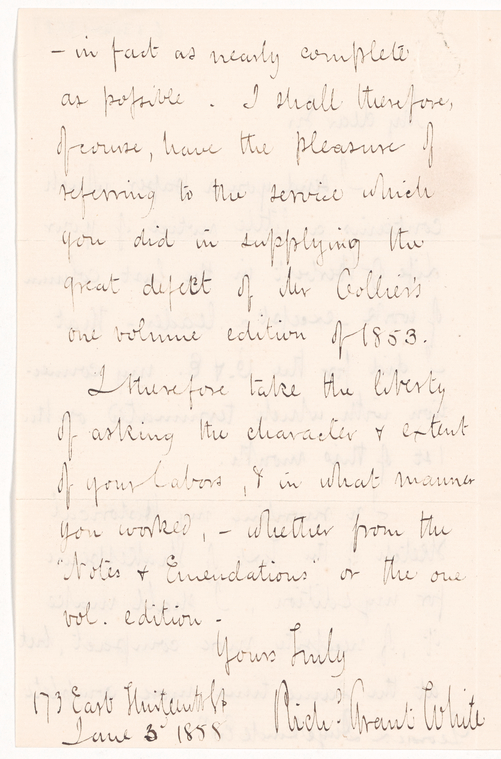 - in fact as nearly complete
as possible. I shall therefore,
of course, have the pleasure of
referring to the service which
you did in supplying the
great defect of Mr Collier's
one volume edition of 1853.
I therefore take the liberty
of asking the character & extent
of your labors, & in what manner
you worked, - whether from the
"Notes & Emendations" or the one
vol. edition -
Yours truly
Rich. Grant White
173 East Thirteenth St
June 3 1858